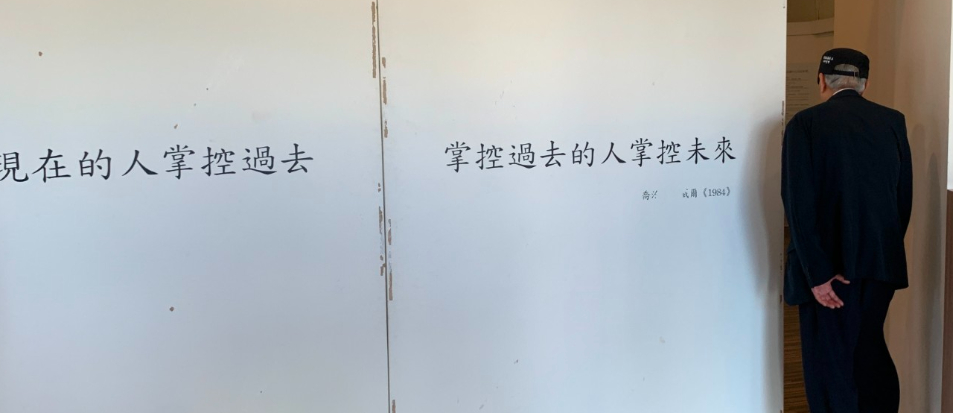 現在的人掌控過去
掌控過去的人掌控未來
喬 爾《1984》